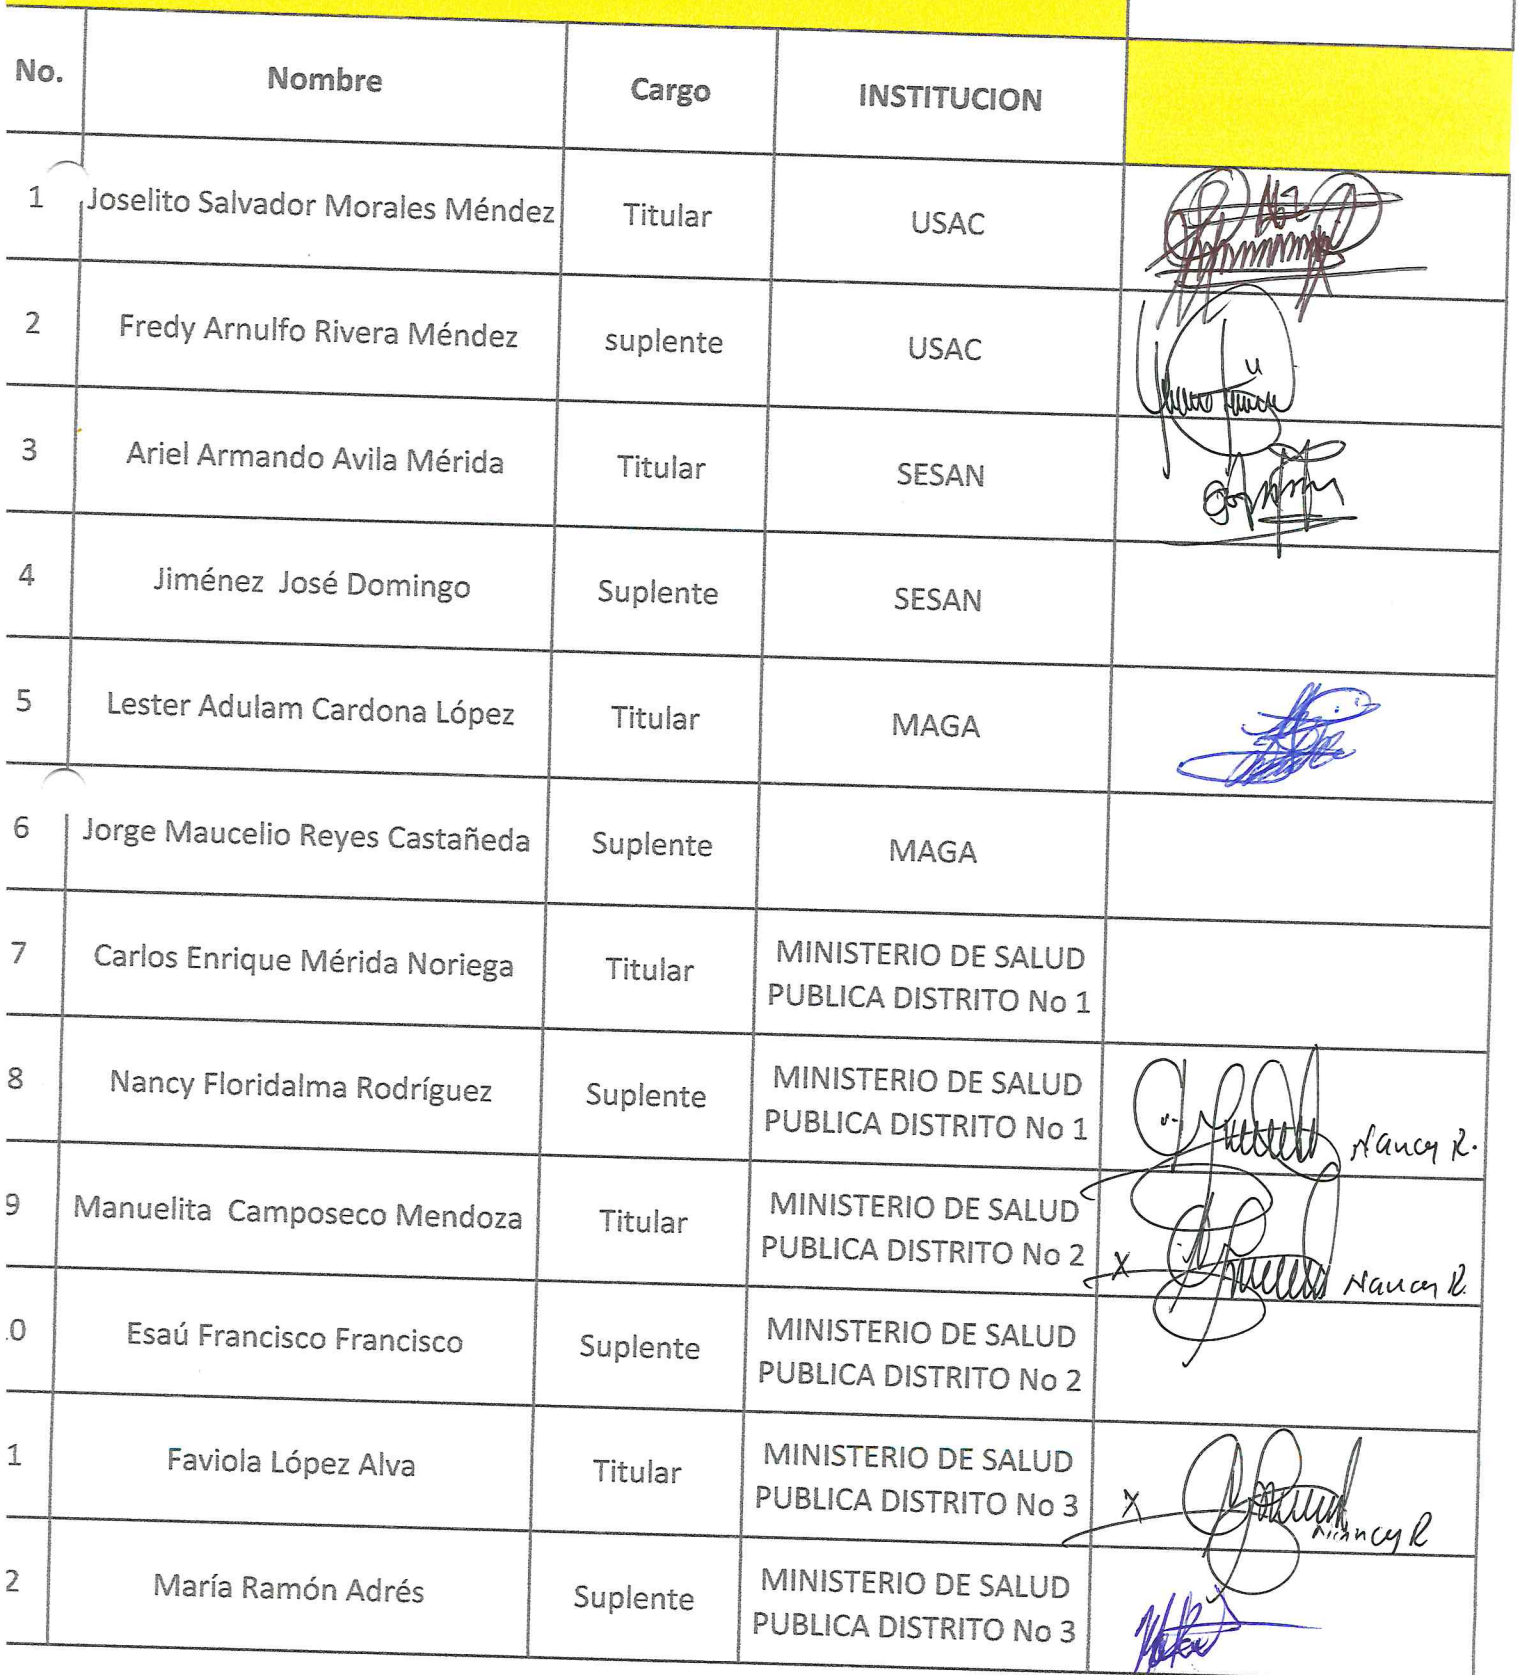 No. Nombre Cargo INSTITUCION
1 Joselito Salvador Morales Méndez Titular USAC
2 Fredy Arnulfo Rivera Méndez suplente USAC
3 Ariel Armando Avila Mérida Titular SESAN
4 Jiménez José Domingo Suplente SESAN
5 Lester Adulam Cardona López Titular MAGA
6 Jorge Maucelio Reyes Castañeda Suplente MAGA
7 Carlos Enrique Mérida Noriega Titular MINISTERIO DE SALUD
PUBLICA DISTRITO No 1
8 Nancy Floridalma Rodríguez Suplente MINISTERIO DE SALUD
PUBLICA DISTRITO No 1 Nancy R.
9 Manuelita Camposeco Mendoza Titular MINISTERIO DE SALUD
PUBLICA DISTRITO No 2 x Nancy R.
.0 Esaú Francisco Francisco Suplente MINISTERIO DE SALUD
PUBLICA DISTRITO No 2
1 Faviola López Alva Titular MINISTERIO DE SALUD
PUBLICA DISTRITO No 3 x Nancy R
2 María Ramón Adrés Suplente MINISTERIO DE SALUD
PUBLICA DISTRITO No 3